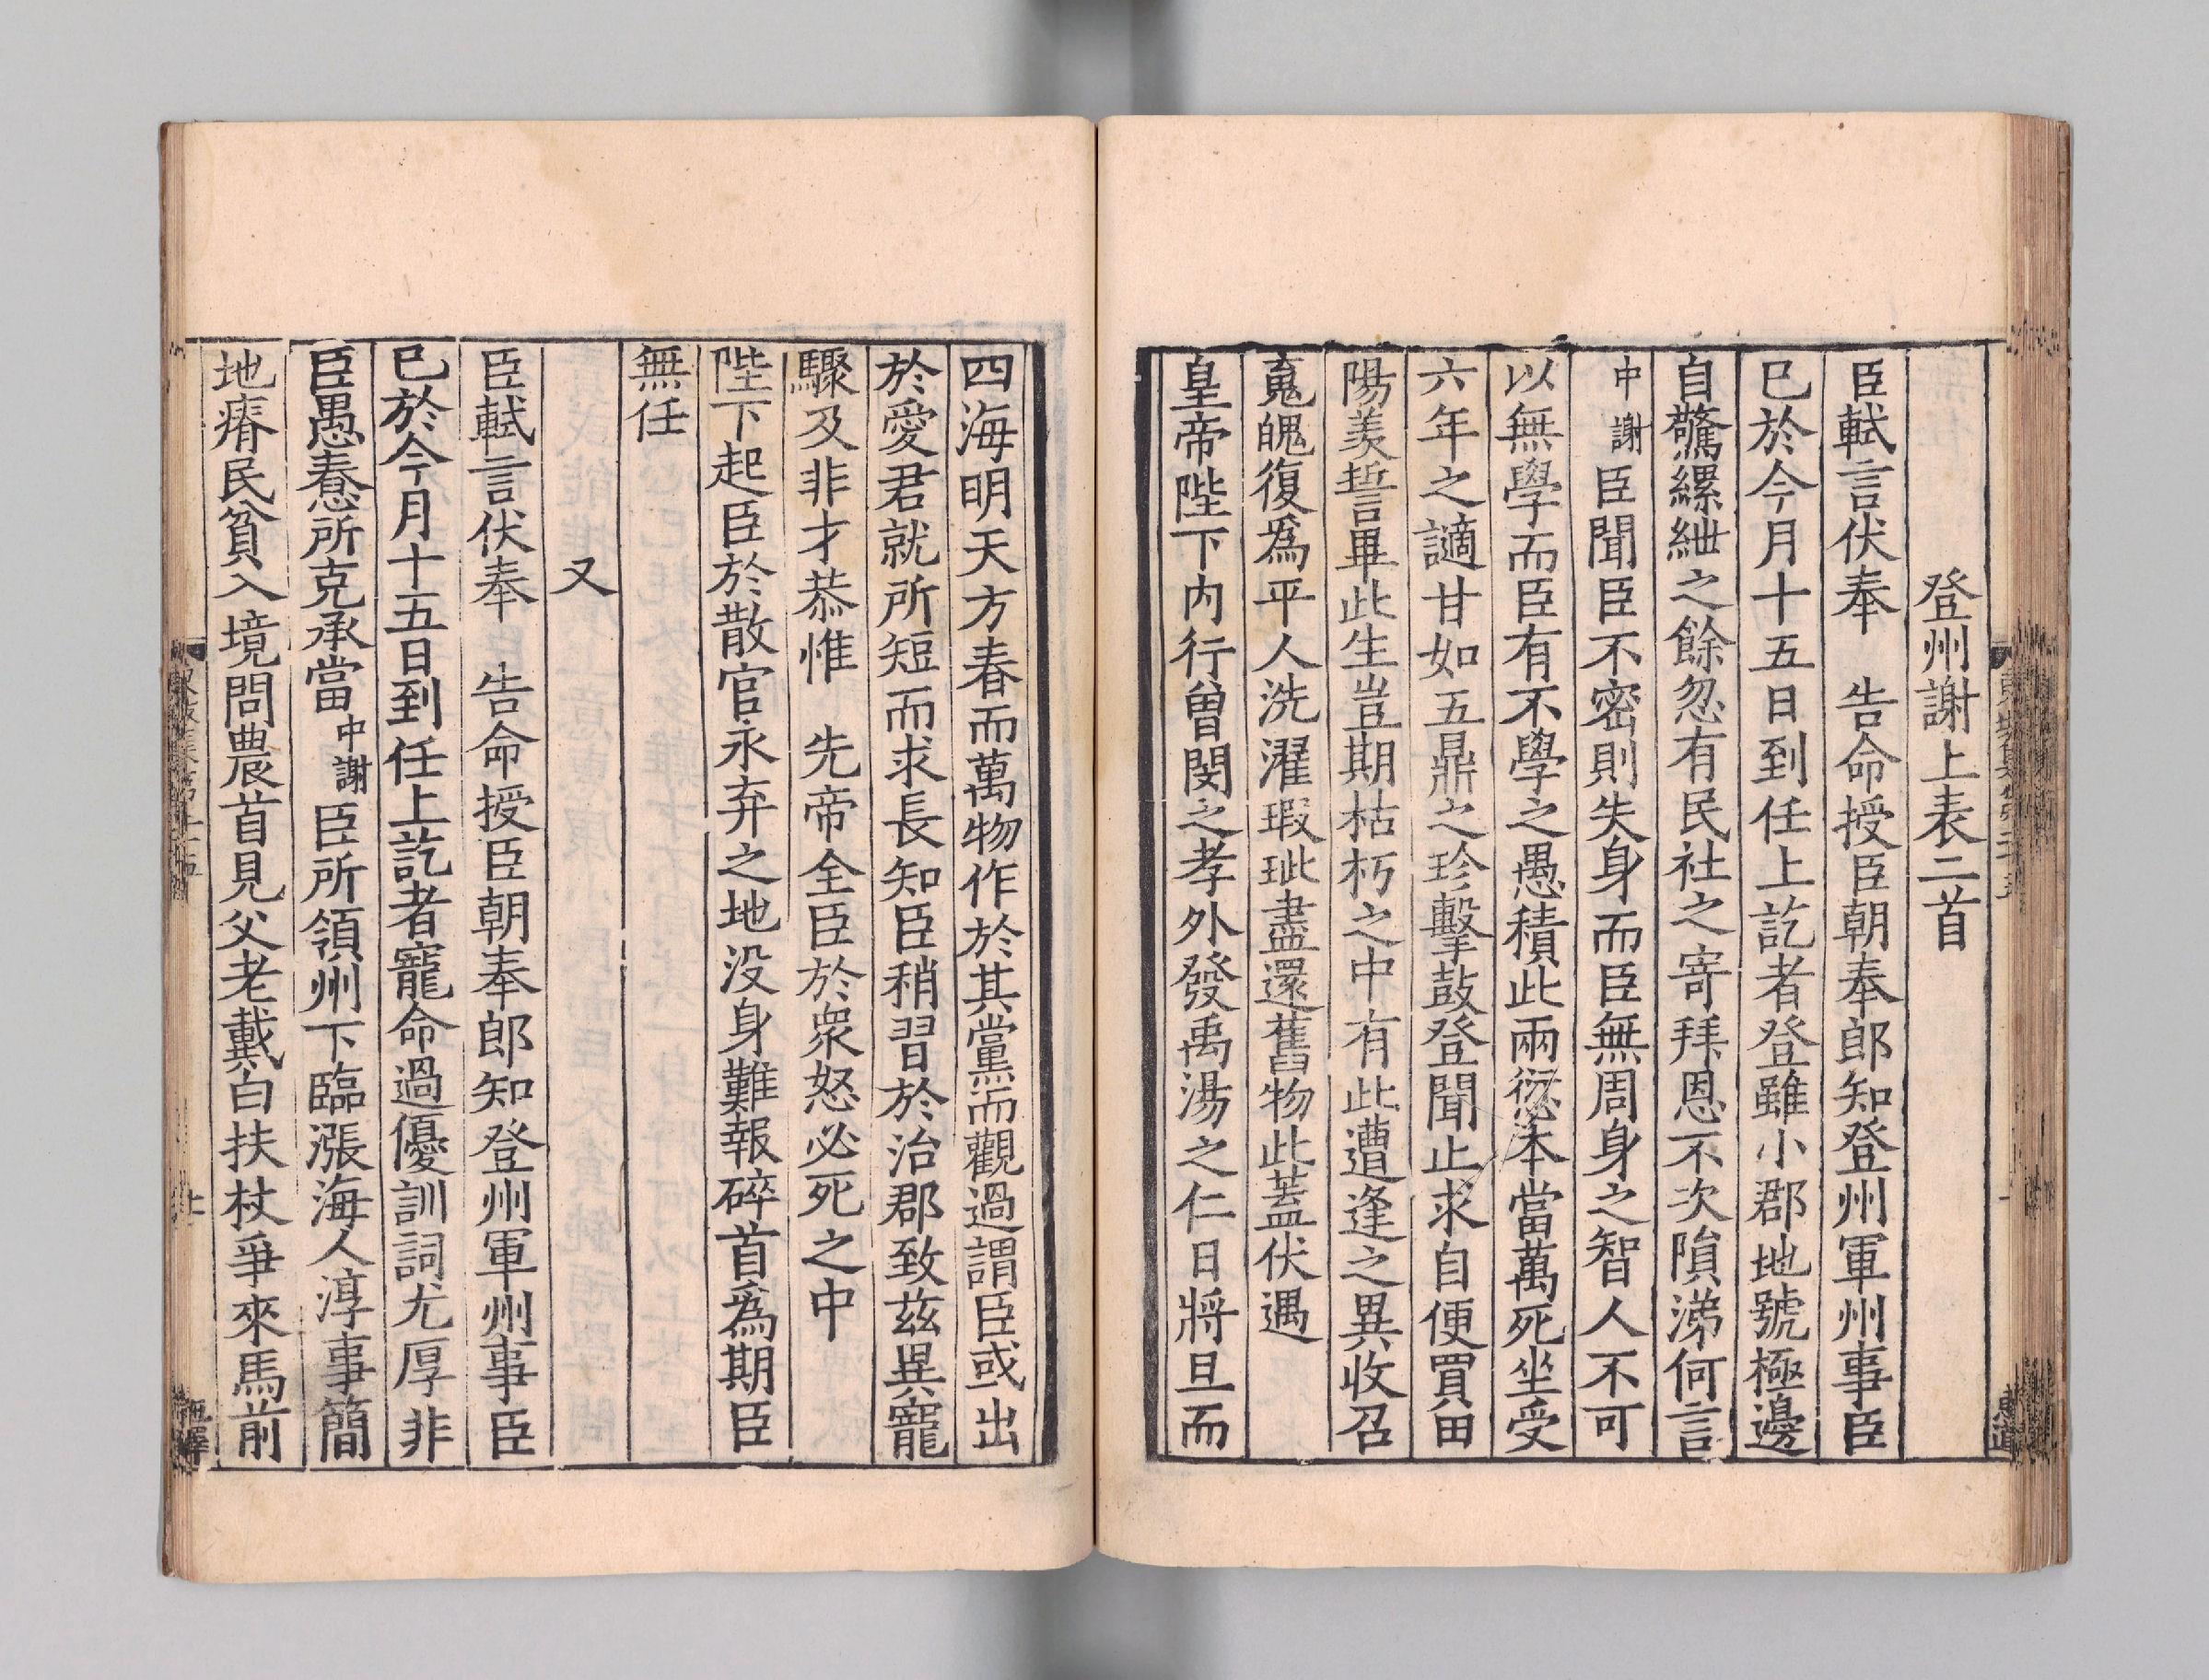 登州謝上表二首
臣軾言伏奉　告命授臣朝奉郎知登州軍州事臣
已於今月十五日到任上訖者登雖小郡地號極邊
自驚縲紲之餘忽有民社之寄拜恩不次隕涕何言
中謝臣聞臣不密則失身而臣無周身之智人不可
以無學而臣有不學之愚積此兩愆本當萬死坐受
六年之謫甘如五鼎之珍擊鼓登聞止求自便買田
陽羨誓畢此生豈期枯朽之中有此遭逢之異收召
䰟魄復爲平人洗濯瑕玼盡還舊物此蓋伏遇
皇帝陛下内行曾閔之孝外發禹湯之仁日將旦而
四海明天方春而萬物作於其黨而觀過謂臣或出
於愛君就所短而求長知臣稍習於治郡致茲異寵
驟及非才恭惟　先帝全臣於衆怒必死之中
陛下起臣於散官永弃之地没身難報碎首爲期臣
無任
又
臣軾言伏奉　告命授臣朝奉郎知登州軍州事臣
已於今月十五日到任上訖者寵命過優訓詞尤厚非
臣愚憃所克承當中謝臣所領州下臨漲海人淳事簡
地瘠民貧入境問農首見父老戴白扶杖爭來馬前